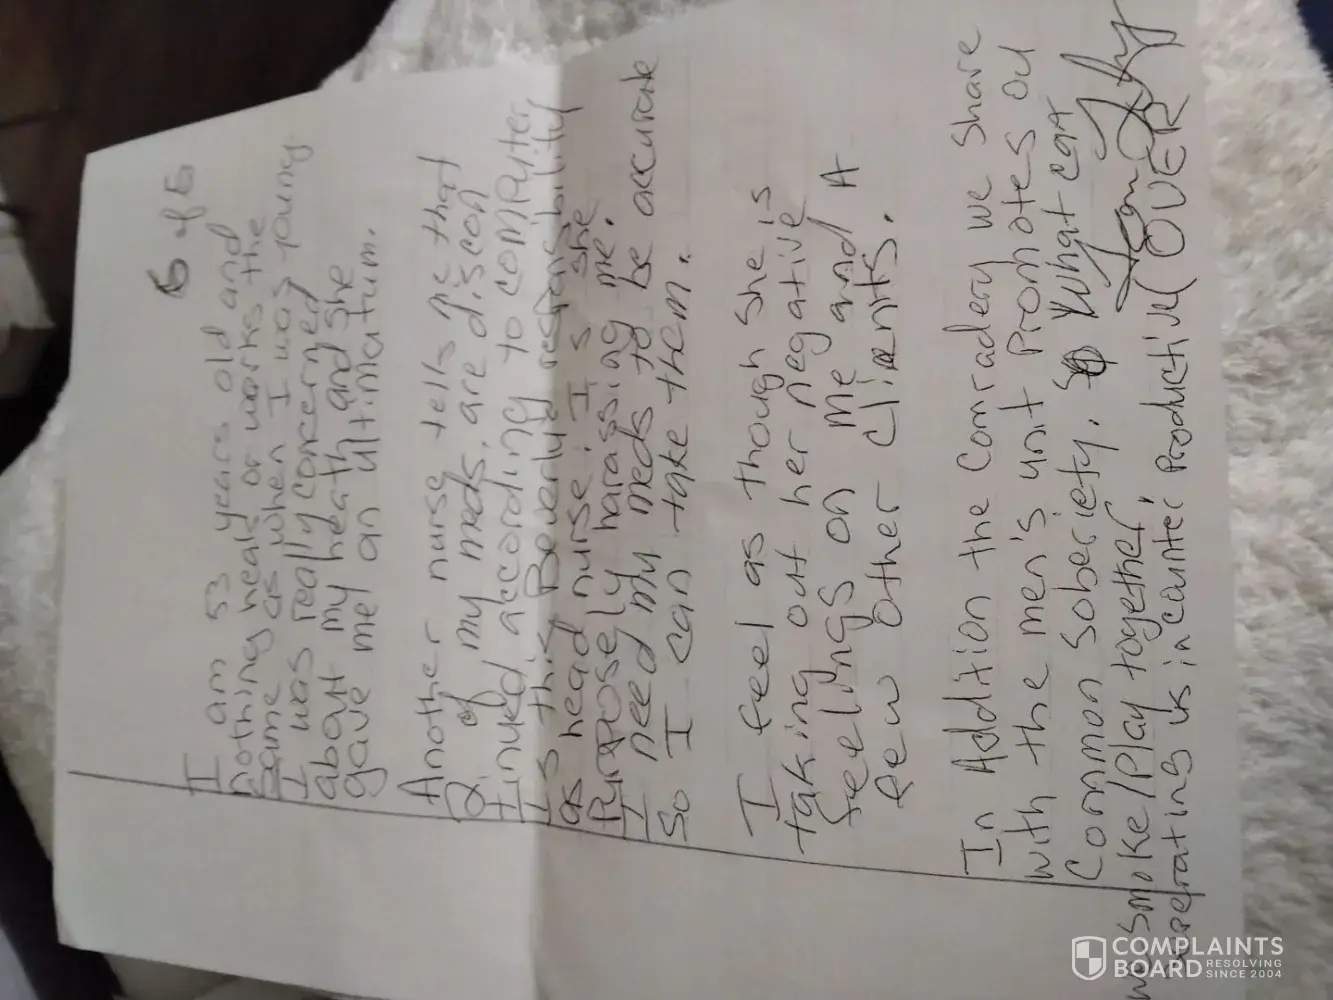 6 of 6
I am 53 years old and
nothing heals or works the
same as when I was young
I was really concerned
about my health and she
gave me an ultimatum.
Another nurse tells me that
2 of my meds. are discon
tinued according to computer
Is this Beverly's responsibility
as head nurse; Is she
Purposely harassing me.
I need my meds to be accurate
so I can take them.
I feel as though she is
taking out her negative
feelings on me and A
few other clients.
In Addition the comradery we share
with the men's unit Promotes our
Common sobriety. What can
we smoke/Play together,
seperating us is counter productive
(OVER
COMPLAINTS
BOARD
RESOLVING
SINCE 2004